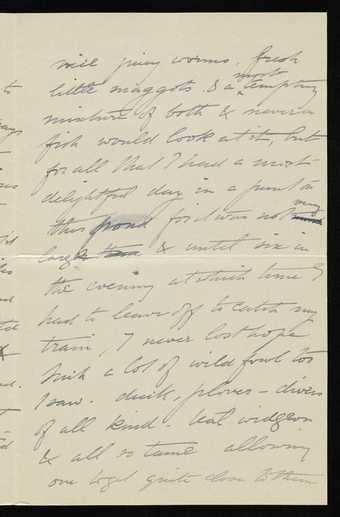 nice juicy worms. fresh
little maggots. & a most tempting
mixture of both & never a
fish would look at it, but
for all that I had a most
delightful day in a punt on
this pond for it was not very
large & until six in
the evening at which time I
had to leave off to catch my
train, I never lost hope.
Such a lot of wild fowl too
I saw. duck, plover - divers
of all kind. teal widgeon
& all so tame allowing
one to get quite close to them